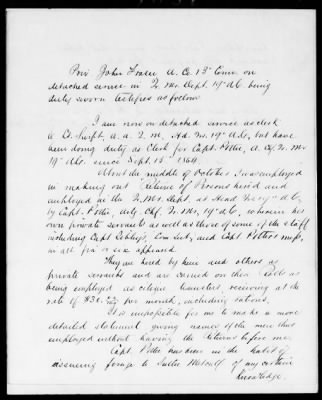 Priv. John Fraser A. Co. 13" Conn. on
detached service in Q. Mr. Dept. 19" A.C. being
duly sworn testifies as follows
I am now on detached service as clerk
A. Q. M. Hd. Qrs. 19" A.C. but have
been doing duty as Clerk for Capt. Pettie, A. Chf. Q. Mr
19" A.C. since Sept. 15" 1864.
About the middle of October I was employed
in making out "Returns of Persons hired and
employed in the Q. Mr. Dept. at Head Qrs 19" A.C,
by Capt. Pettie, actg. Chf. Q. Mr. 19" A.C, wherein his
own private servants as well as those of some of the staff
including Capt. Com Sub, and Capt Pettie's mess,
in all five or six appeared.
They are hired by him and others as
private servants and are carried on their Rolls as
being employed as citizen teamsters, receiving at the
rate of $30. per month, including rations.
It is impossible for me to make a more
detailed statement giving names of the men thus
employed without having the returns before me.
Capt. Pettie has been in the habit of
issuing forage to Sutler Metcalf of my certain
knowledge.